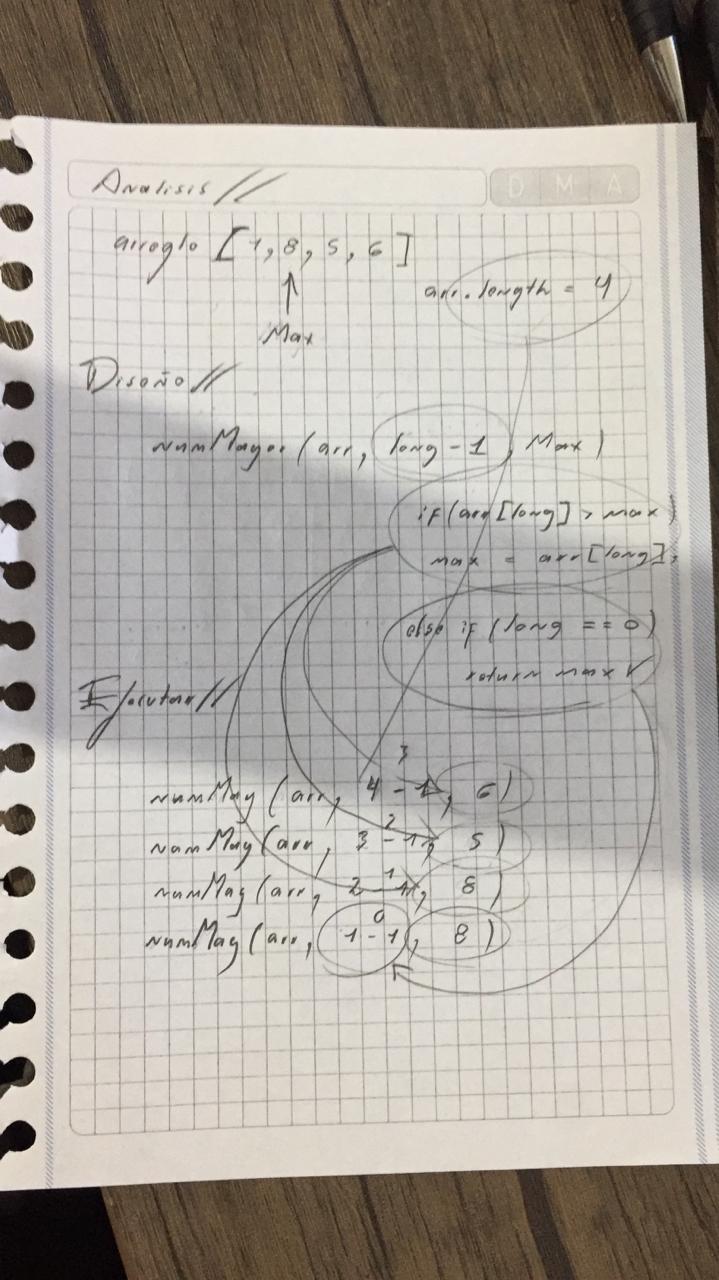 Analisis //
D M A
arreglo [1, 8, 5, 6]
arr.length = 4
↑
Max
Diseño //
numMayor (arr, long - 1, Max)
if (arr[long] > max)
max = arr[long];
else if (long == 0)
return max
Ejecutar //
3
numMay (arr, 4 - 1, 6)
2
numMay (arr, 3 - 1, 5)
1
numMay (arr, 2 - 1, 8)
0
numMay (arr, 1 - 1, 8)